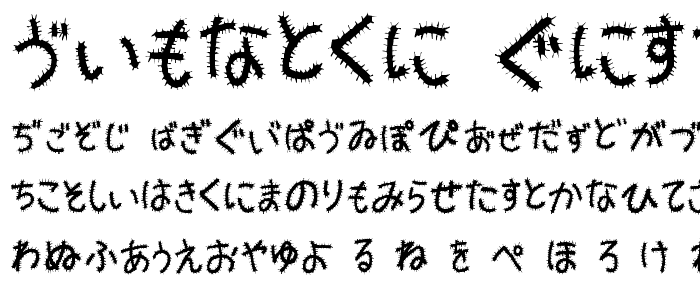 ゔいもなとくに ぐにす
ぢごぞじ ばぎぐい゛ぱゔみぽぴおぜだずどがづ
ちこそしいはきくにまのりもみらせたすとかなひてさ
わぬふあうえおやゆよ る ね を ぺ ほ ろ け